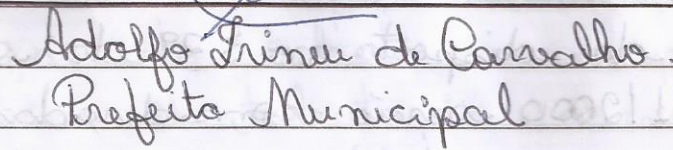 Adolfo Irineu de Carvalho.
Prefeito Municipal